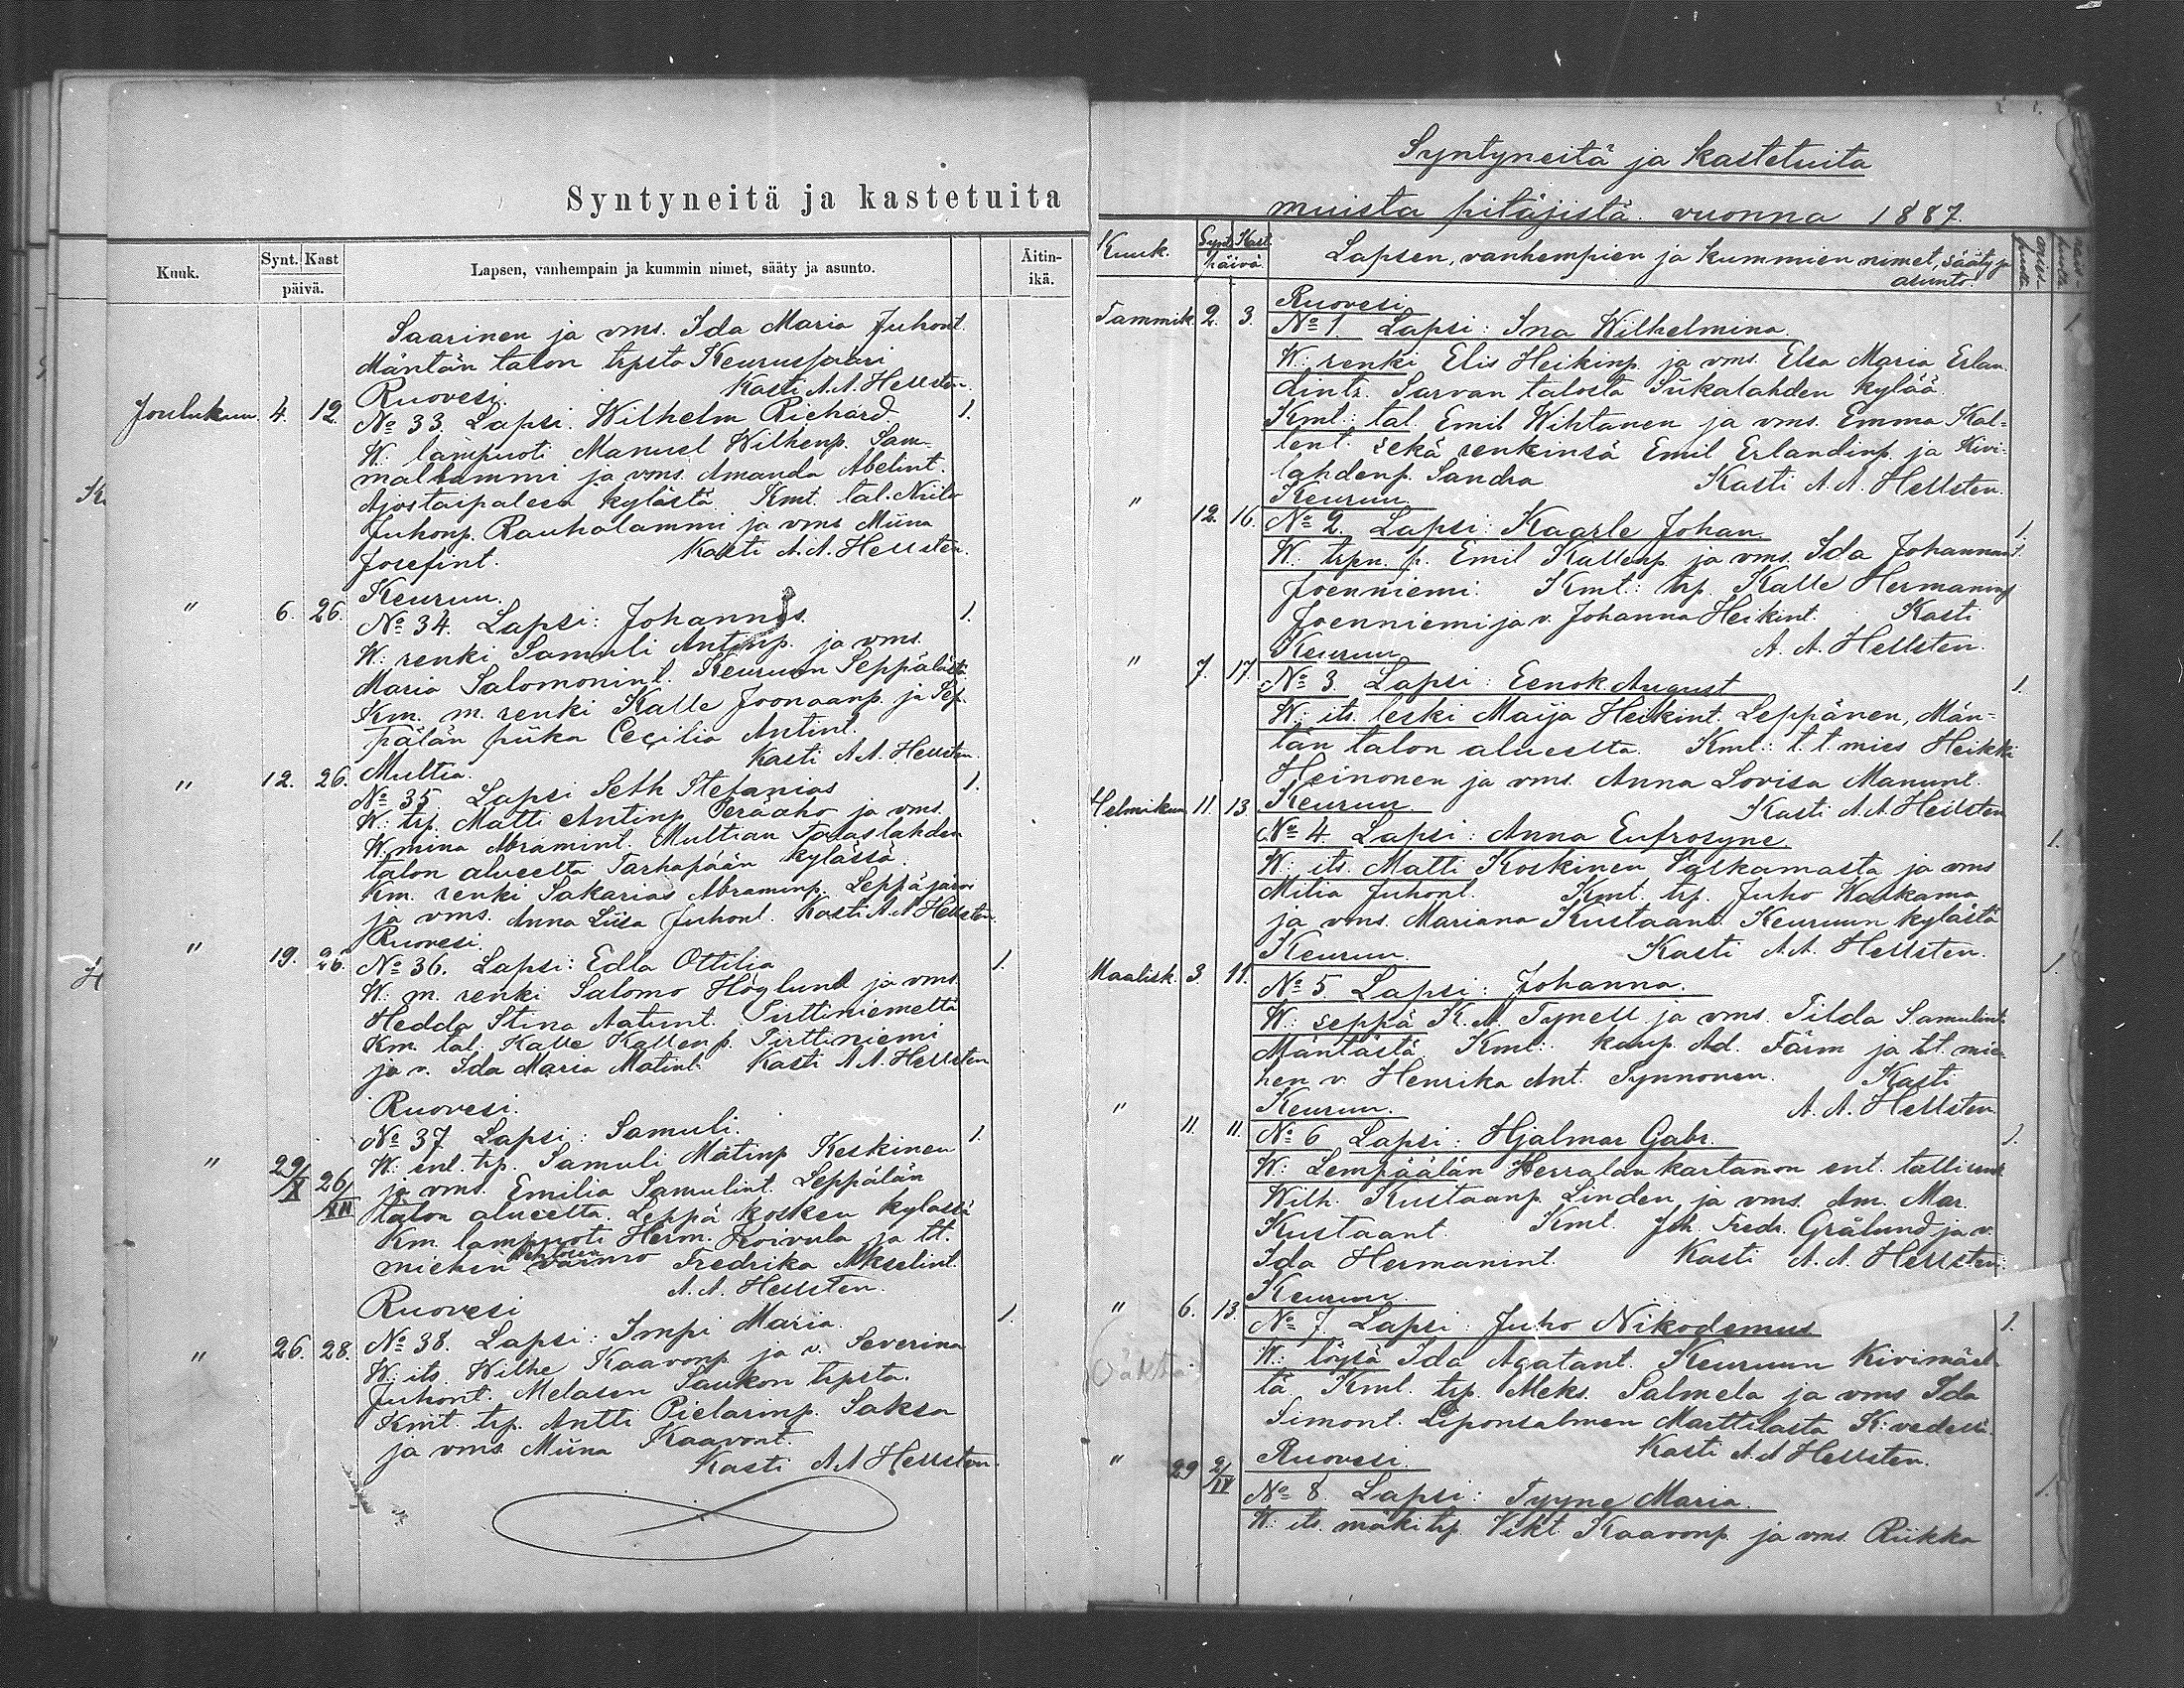 Syntyneitä ja kastetuita
Kuuk.
Synt. Kast
päivä.
Lapsen, vanhempain ja kummin nimet, sääty ja asunto.
Äitin-
ikä.
Saarinen ja vms. Ida Maria Juhont.
Mäntän talon trpsta Keurusselän
Ruovesi. Kasti A. A. Hellsten.
Joulukuu. 4. 12. № 33. Lapsi. Wilhelm Richard 1.
W: lampuoti Manuel Wilhenp. Sam-
mallammi ja vms. Amanda Abelint.
Ajostaipaleen kylästä. Kmt. tal. Niilo
Juhonp. Rauhalammi ja vms Miina
Josefint. Kasti A. A. Hellsten.
Keuruu.
" 6. 26. № 34. Lapsi: Johannes. 1.
W: renki Samuli Antinp. ja vms.
Maria Salomonint. Keuruun Seppälästä
Km. m. renki Kalle Joonaanp. ja Sep-
pälän piika Cecilia Antint.
Kasti A. A. Hellsten
Multia.
" 12. 26. № 35. Lapsi Seth Stefanias 1.
W: trp. Matti Antinp. Peräaho ja vms.
W:mina Abramint. Multian
talon alueelta Tarhapään kylässä.
Km. renki Sakarias Abraminp. Leppäjärvi
ja vms. Anna Liisa Juhont. Kasti A. A. Hellsten.
Ruovesi.
" 19. 26. № 36. Lapsi: Edla Ottilia 1.
W: m. renki Salomo Höglund ja vms.
Hedda Stina Aatunt. Pirttiniemeltä
Km. tal. Kalle Kallenp. Pirttiniemi
ja v. Ida Maria Matint. Kasti A. A. Hellsten
Ruovesi.
№ 37 Lapsi: Samuli. 1.
" 29/X 26/XII W: ent. trp. Samuli Matinp Keskinen
ja vms. Emilia Samulint. Leppälän
talon alueelta Leppäkosken kylässä
Km. lampuoti Herm. Koivula ja tt.
miehen vaimo Fredrika Akselint.
A. A. Hellsten.
Ruovesi
" 26. 28. № 38. Lapsi: Impi Maria. 1.
W: its. Wilhe Kaavonp. ja v. Severina
Juhont. Melasen Saukon trpsta.
Kmt. trp. Antti Pielarinp. Saksa
ja vms. Miina Kaavont.
Kasti A. A Hellsten.
Syntyneitä ja kastetuita
muista pitäjistä vuonna 1887.
Kuuk.
Synt. Kast.
päivä.
Lapsen, vanhempien ja kummien nimet, sääty ja
asunto.
Ruovesi
Tammik. 2. 3. № 1. Lapsi: Ina Wilhelmina. 1
W: renki Elis Heikinp. ja vms. Elsa Maria Erlan-
dintr. Sarvan talosta Siikalahden kylää.
Kmt: tal. Emil Wihtanen ja vms. Emma Kal-
lent. sekä renkinsä Emil Erlandinp. ja Kivi-
lahdenp. Sandra Kasti A. A. Hellsten.
Keuruu
" 12. 16. № 2. Lapsi: Kaarle Johan. 1.
W: trpn. p. Emil Kallenp. ja vms. Ida Johannant.
Joenniemi. Kmt.: trp. Kalle Hermaninp
Joenniemi ja v. Johanna Heikint. Kasti
A. A. Hellsten.
Keuruu
" 7. 17. № 3. Lapsi: Eenok August 1.
W: its. leski Maija Heikint. Leppänen, Män-
tän talon alueelta. Kmt: t.t. mies Heikki
Heinonen ja vms. Anna Lovisa Manunt.
Kasti A. A. Hellsten
Keuruu
Helmikuu 11. 13. № 4. Lapsi: Anna Eufrosyne. 1.
W: its. Matti Koskinen Valkamasta ja vms
Milia Juhont. Kmt. trp. Juho Walkama
ja vms. Mariana Kustaant. Keuruun kylästä
Kasti A. A. Hellsten.
Keuruu.
Maalisk. 3. 11. № 5. Lapsi: Johanna. 1.
W: seppä K. A. Tynell ja vms. Tilda Samulint.
Mäntästä. Kmt: kaup. Ad. Färm ja t.t. mie-
hen v. Henrika Ant. Synnonen. Kasti
A. A. Hellsten
Keuruu.
" 11. 11. № 6 Lapsi: Hjalmar Gabr. 1.
W: Lempäälän Herralan kartanon ent. tallirenki
Wilh. Kustaanp. Linden ja vms. Am. Mar.
Kustaant. Kmt. Joh. Fredr. Grålund ja v.
Ida Hermanint. Kasti A. A. Hellsten.
Keuruu.
" 6. 13. № 7. Lapsi: Juho Nikodemus 1.
W: löysä Ida Agatant. Keuruun Kivimäel-
tä Kmt. trp. Aleks. Salmela ja vms Ida
Simont. Liponsalmen Marttilasta K:vedeltä.
Kasti A. A Hellsten.
Ruovesi.
" 29 2/IV № 8. Lapsi: Tyyne Maria. 1.
W: its. mäkitrp. Vikt. Kaavonp. ja vms. Riikka